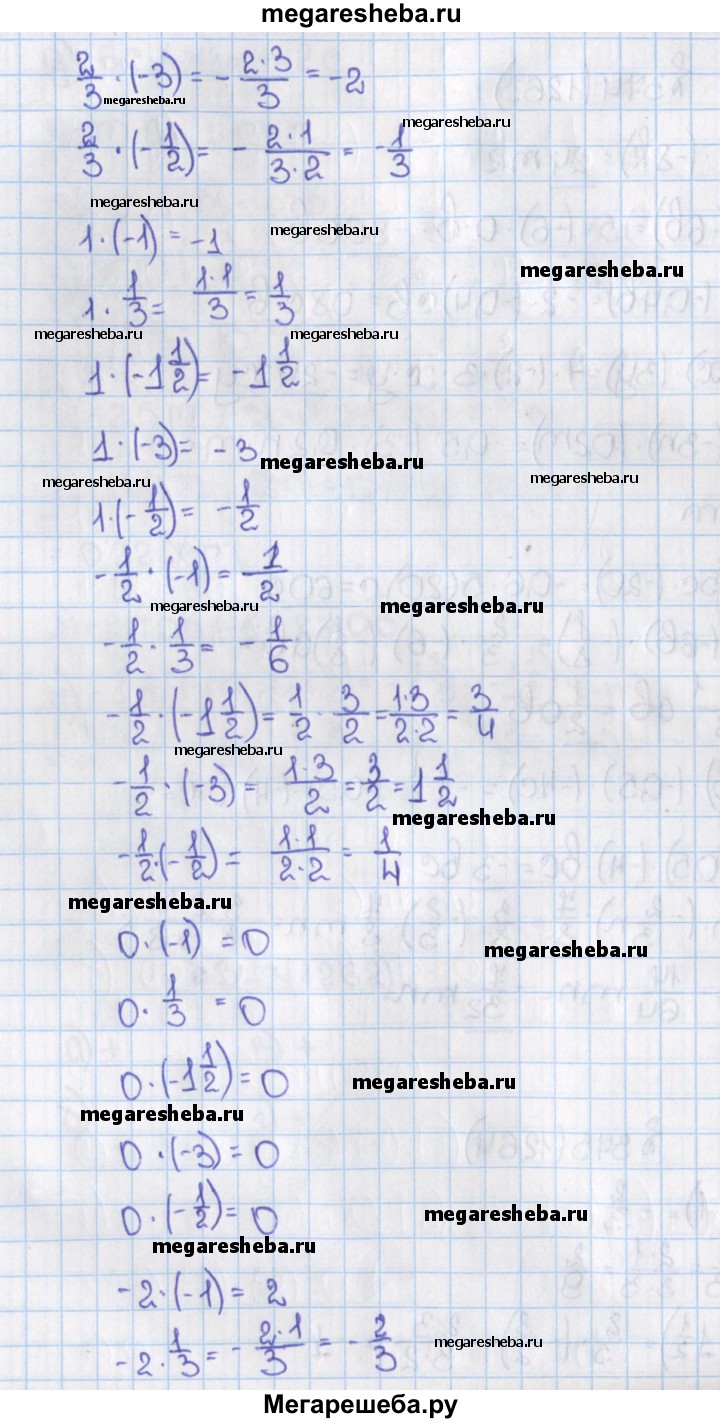 megaresheba.ru
2/3 · (-3) = - 2·3/3 = -2
megaresheba.ru
megaresheba.ru
2/3 · (-1/2) = - 2·1/3·2 = -1/3
megaresheba.ru
1·(-1) = -1
megaresheba.ru
megaresheba.ru
1· 1/3 = 1·1/3 = 1/3
megaresheba.ru
megaresheba.ru
1·(-1 1/2) = -1 1/2
1·(-3) = -3
megaresheba.ru
megaresheba.ru
megaresheba.ru
1·(-1/2) = -1/2
-1/2 · (-1) = 1/2
megaresheba.ru
megaresheba.ru
-1/2 · 1/3 = -1/6
-1/2 · (-1 1/2) = 1/2 · 3/2 = 1·3/2·2 = 3/4
megaresheba.ru
-1/2 · (-3) = 1·3/2 = 3/2 = 1 1/2
megaresheba.ru
-1/2·(-1/2) = 1·1/2·2 = 1/4
megaresheba.ru
0·(-1) = 0
megaresheba.ru
0· 1/3 = 0
0·(-1 1/2) = 0
megaresheba.ru
megaresheba.ru
0·(-3) = 0
0·(-1/2) = 0
megaresheba.ru
megaresheba.ru
-2·(-1) = 2
-2· 1/3 = - 2·1/3 = -2/3
megaresheba.ru
Мегарешеба.ру